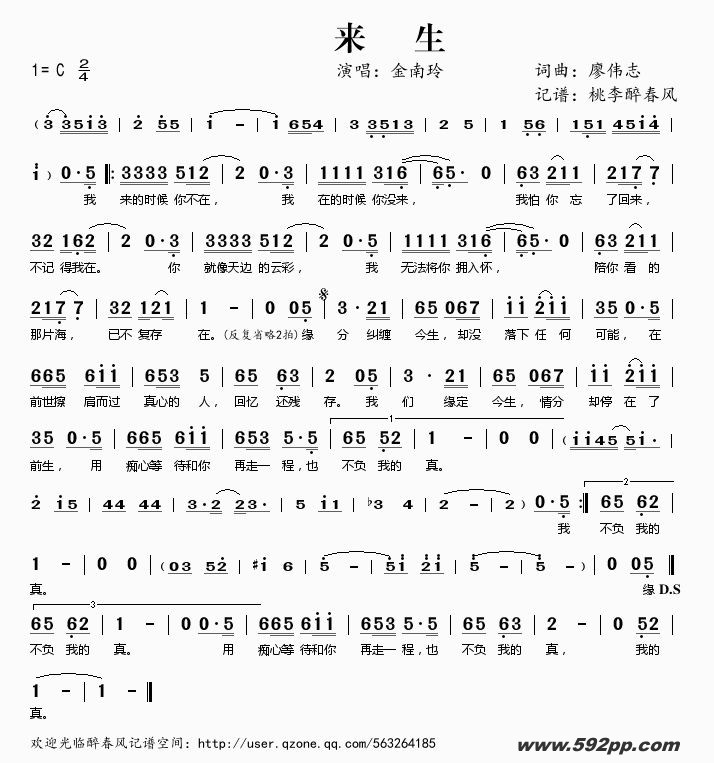 来 生
1= C 2/4 演唱：金南玲 词曲：廖伟志
记谱：桃李醉春风
( 3 3 5 i 3 | 2 5 5 | i - | i 6 5 4 | 3 3 5 1 3 | 2 5 | 1 5 6 | 1 5 1 4 5 i 4 |
i ) 0 · 5 ‖: 3 3 3 3 5 1 2 | 2 0 · 3 | 1 1 1 1 3 1 6 | 6 5 · 0 | 6 3 2 1 1 | 2 1 7 7 |
我 来的时候 你不在， 我 在的时候 你没来， 我怕 你 忘 了回来，
3 2 1 6 2 | 2 0 · 3 | 3 3 3 3 5 1 2 | 2 0 · 5 | 1 1 1 1 3 1 6 | 6 5 · 0 | 6 3 2 1 1 |
不记 得我在。 你 就像天边 的云彩， 我 无法将你 拥入怀， 陪你 看 的
2 1 7 7 | 3 2 1 2 1 | 1 - | 0 0 5 𝄋 | 3 · 2 1 | 6 5 0 6 7 | i i 2 i i | 3 5 0 · 5 |
那片海， 已不 复存 在。 (反复省略2拍) 缘 分 纠缠 今生，却没 落下 任 何 可能， 在
6 6 5 6 i i | 6 5 3 5 | 6 5 6 3 | 2 0 5 | 3 · 2 1 | 6 5 0 6 7 | i i 2 i i |
前世擦 肩而过 真心的 人， 回忆 还残 存。 我 们 缘定 今生，情分 却停 在 了
3 5 0 · 5 | 6 6 5 6 i i | 6 5 3 5 · 5 | 1 6 5 5 2 | 1 - | 0 0 | ( i i 4 5 5 i · |
前生， 用 痴心等 待和你 再走一 程，也 不负 我的 真。
2 i 5 | 4 4 4 4 | 3 · 2 2 3 · | 5 i 1 | ♭3 4 | 2 - | 2 ) 0 · 5 :‖ 2 6 5 6 2 |
我 不负 我的
1 - | 0 0 | ( 0 3 5 2 | ♯i 6 | 5 - | 5 i 2 i | 5 - | 5 - ) | 0 0 5 ‖
真。 缘 D.S
3 6 5 6 2 | 1 - | 0 0 · 5 | 6 6 5 6 i i | 6 5 3 5 · 5 | 6 5 6 3 | 2 - | 0 0 5 |
不负 我的 真。 用 痴心等 待和你 再走一 程，也 不负 我的 真， 我的
1 - | 1 - ‖
真。
欢迎光临醉春风记谱空间：http://user.qzone.qq.com/563264185
www.592pp.com